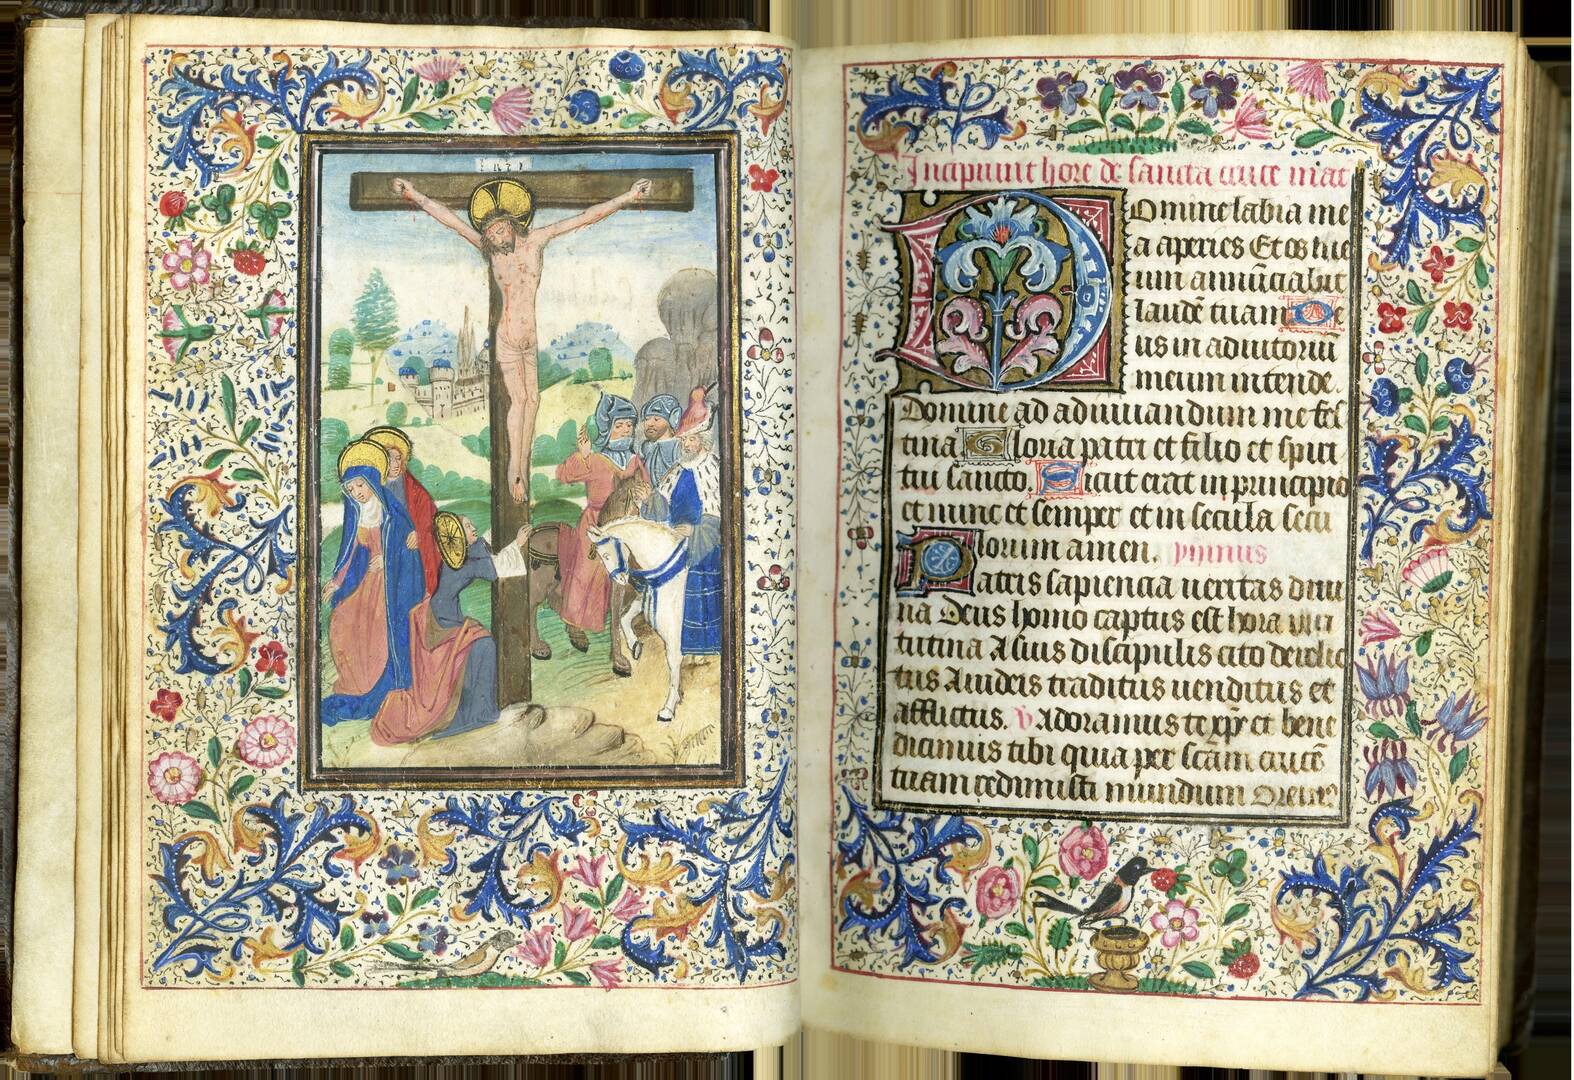 INRI
Incipiunt hore de sancta cruce mat
Domine labia me
a aperies Et os tue
um annūciabit
laudē tuam De
us in adiutoriū
meum intende.
Domine ad adiuuandum me fes
tina Gloria patri et filio et spiri
tui sancto. Sicut erat in principio
et nunc et semper et in secula secu
lorum amen. ymnus
Patris sapiencia ueritas diui
na Deus homo captus est hora ma
tutina A suis discipulis cito derelic
tus A iudeis traditus uenditus et
afflictus. V Adoramus te xpe et bene
dicimus tibi quia per scām crucē
tuam redimisti mundum